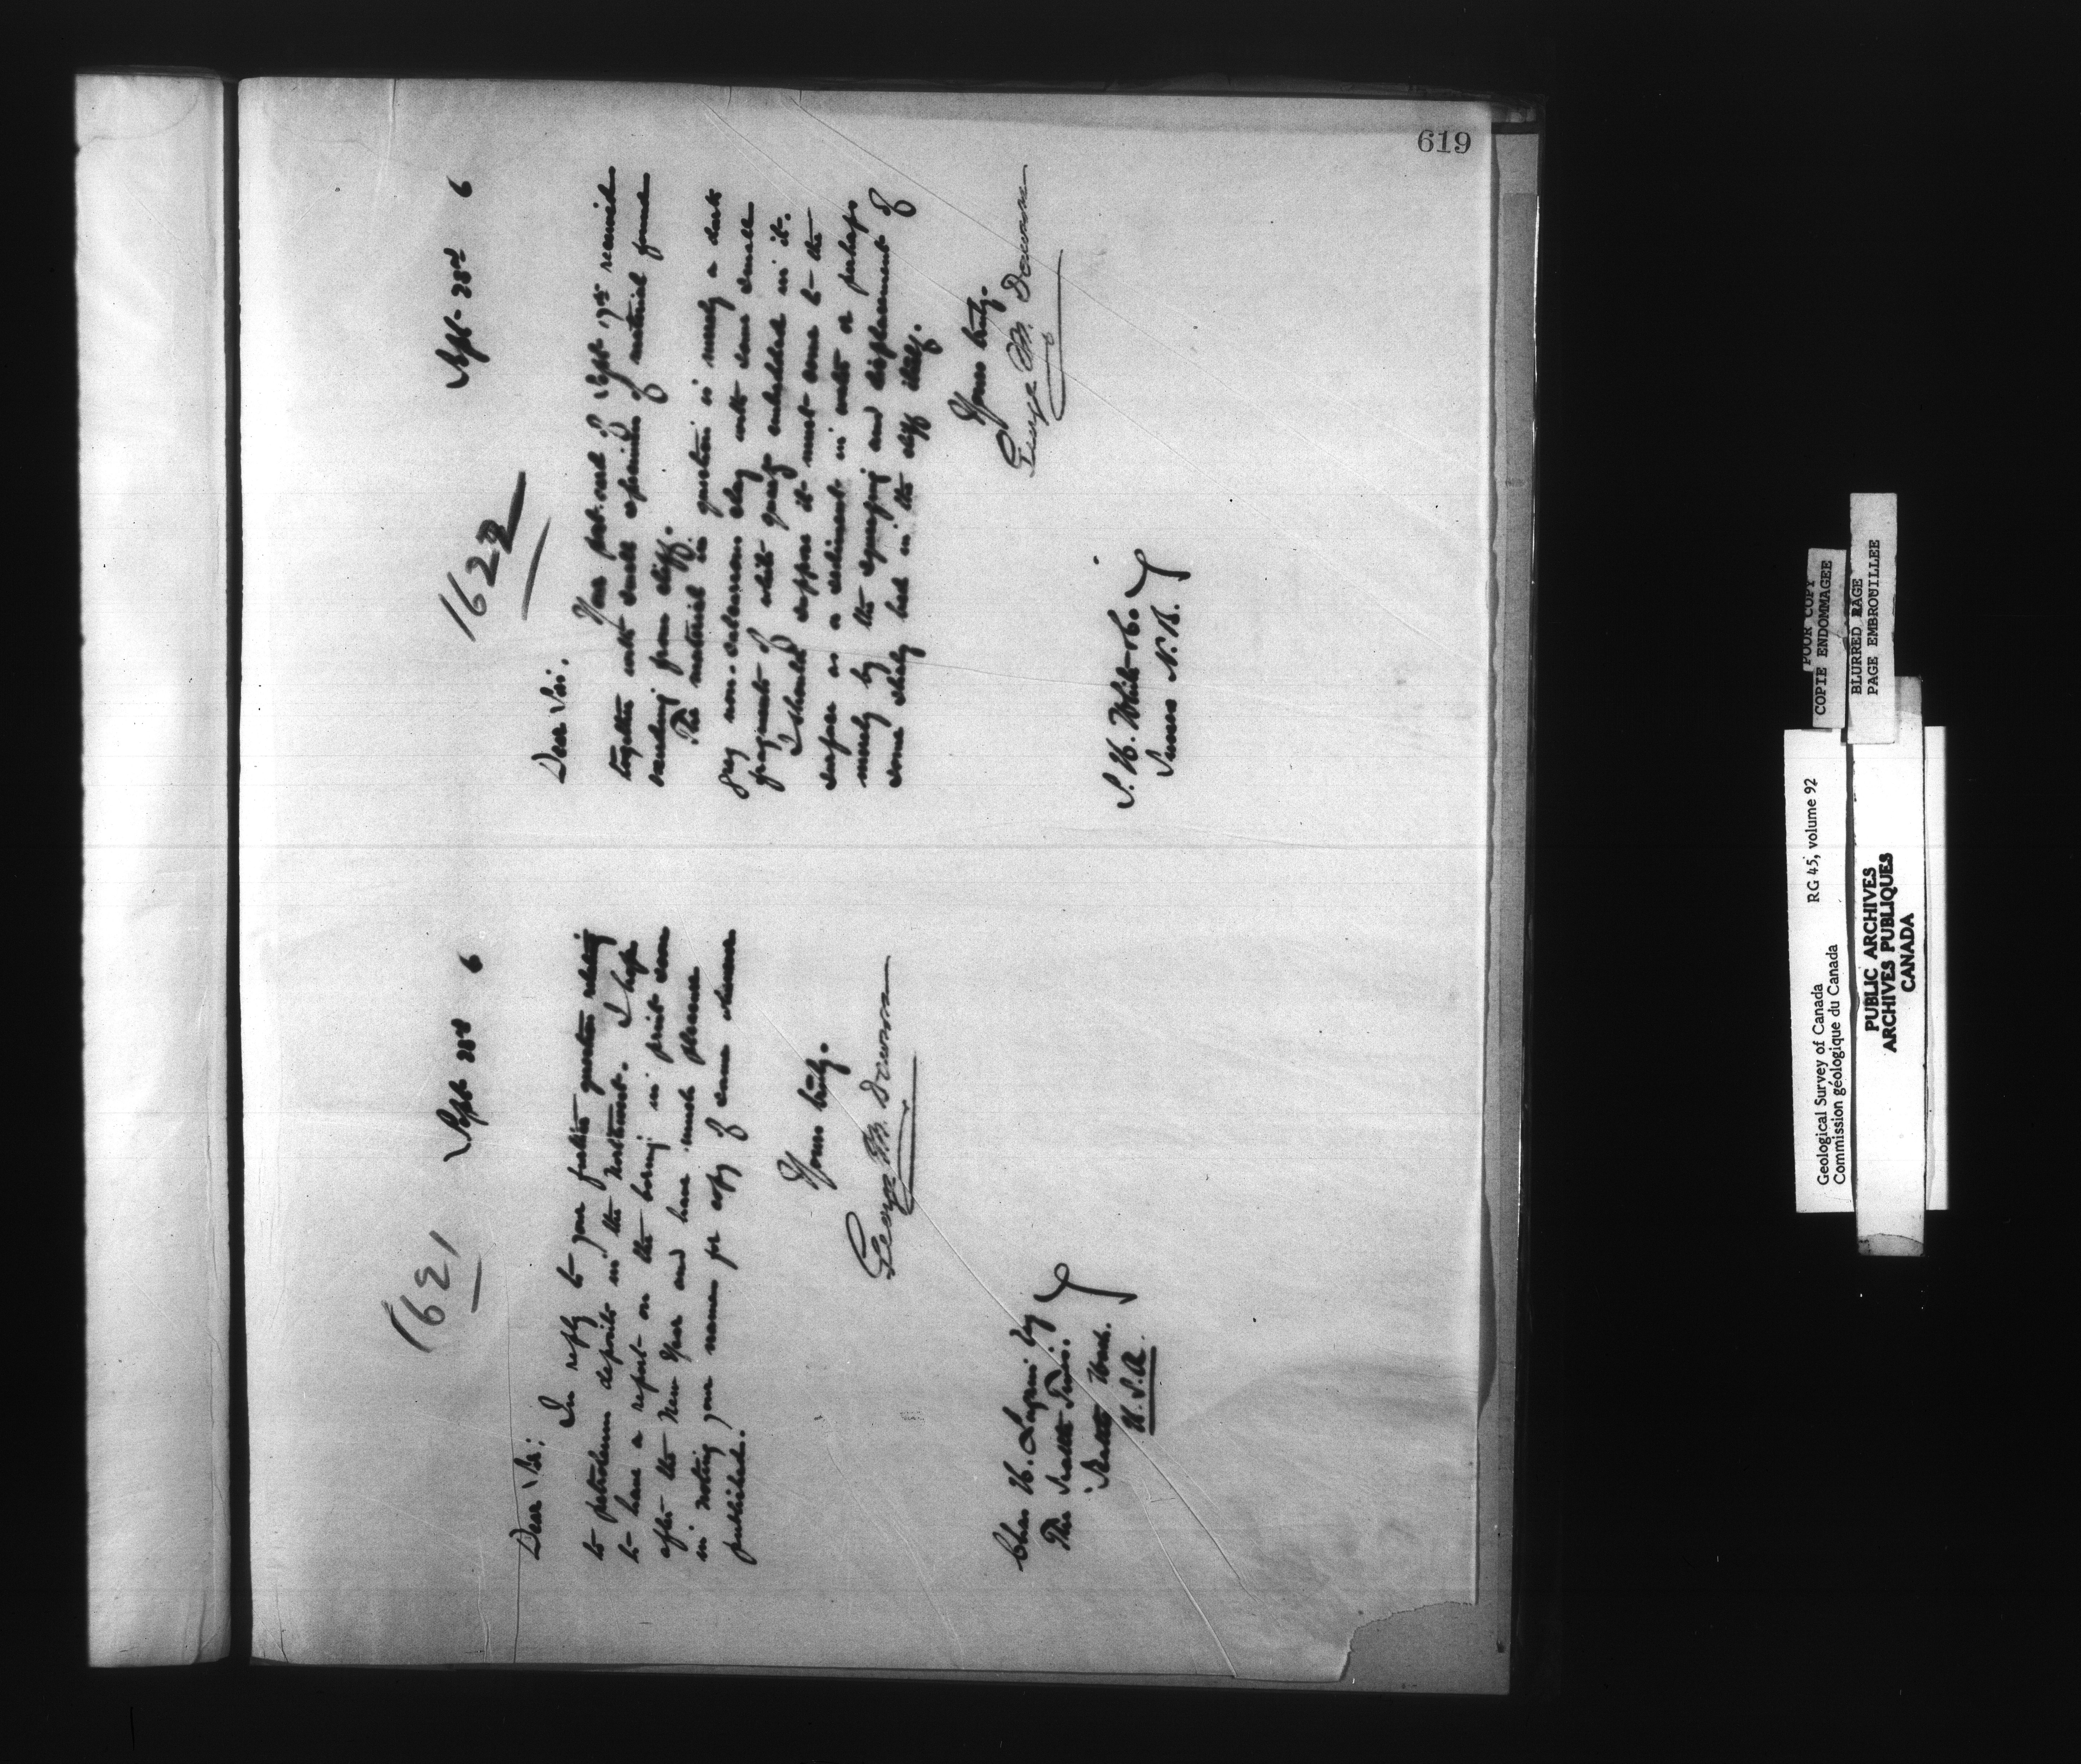 619
1621
Sept 23rd 6
Dear Sir:
In reply to your further question relating
to petroleum deposits in the Northwest. I hope
to have a report on the boring in print soon
after the New Year and have much pleasure
in noting your name for copy of same when
published.
Yours truly.
George M. Dawson
Chas H.
The Seattle Times.
Seattle Wash.
U.S.A.
1622
Sept 23rd 6
Dear Sir.
Your post-card of Sept 17th received
together with small specimen of material found
oozing from cliff.
The material in question is merely a dark
grey non-calcareous clay with some small
fragments of white quartz embedded in it.
I should suppose it must come to the
surface as a sediment in water or perhaps
merely by the squeezing and displacement of
some clayey bed in the cliff itself.
Yours truly.
George M. Dawson
S. H. White & Co.
Sussex N.B.
POOR COPY
COPIE ENDOMMAGEE
BLURRED PAGE
PAGE EMBROUILLEE
Geological Survey of Canada RG 45, volume 92
Commission géologique du Canada
PUBLIC ARCHIVES
ARCHIVES PUBLIQUES
CANADA